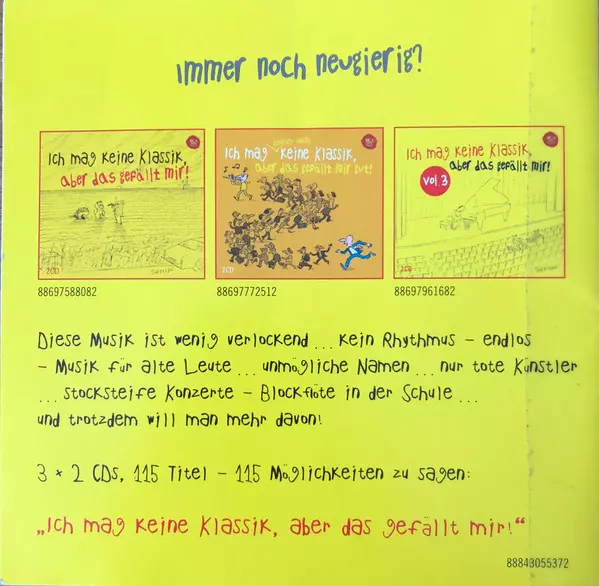 Immer noch neugierig?
Ich mag keine Klassik,
aber das gefällt mir!
2CD
88697588082
immer noch
Ich mag keine Klassik,
aber das gefällt mir gut!
2CD
88697772512
Ich mag keine Klassik,
aber das gefällt mir!
Vol. 3
2CD
88697961682
Diese Musik ist wenig verlockend ... kein Rhythmus – endlos
– Musik für alte Leute ... unmögliche Namen ... nur tote Künstler
... stocksteife Konzerte – Blockflöte in der Schule ...
und trotzdem will man mehr davon!
3 * 2 CDs, 115 Titel – 115 Möglichkeiten zu sagen:
„Ich mag keine Klassik, aber das gefällt mir!“
88843055372